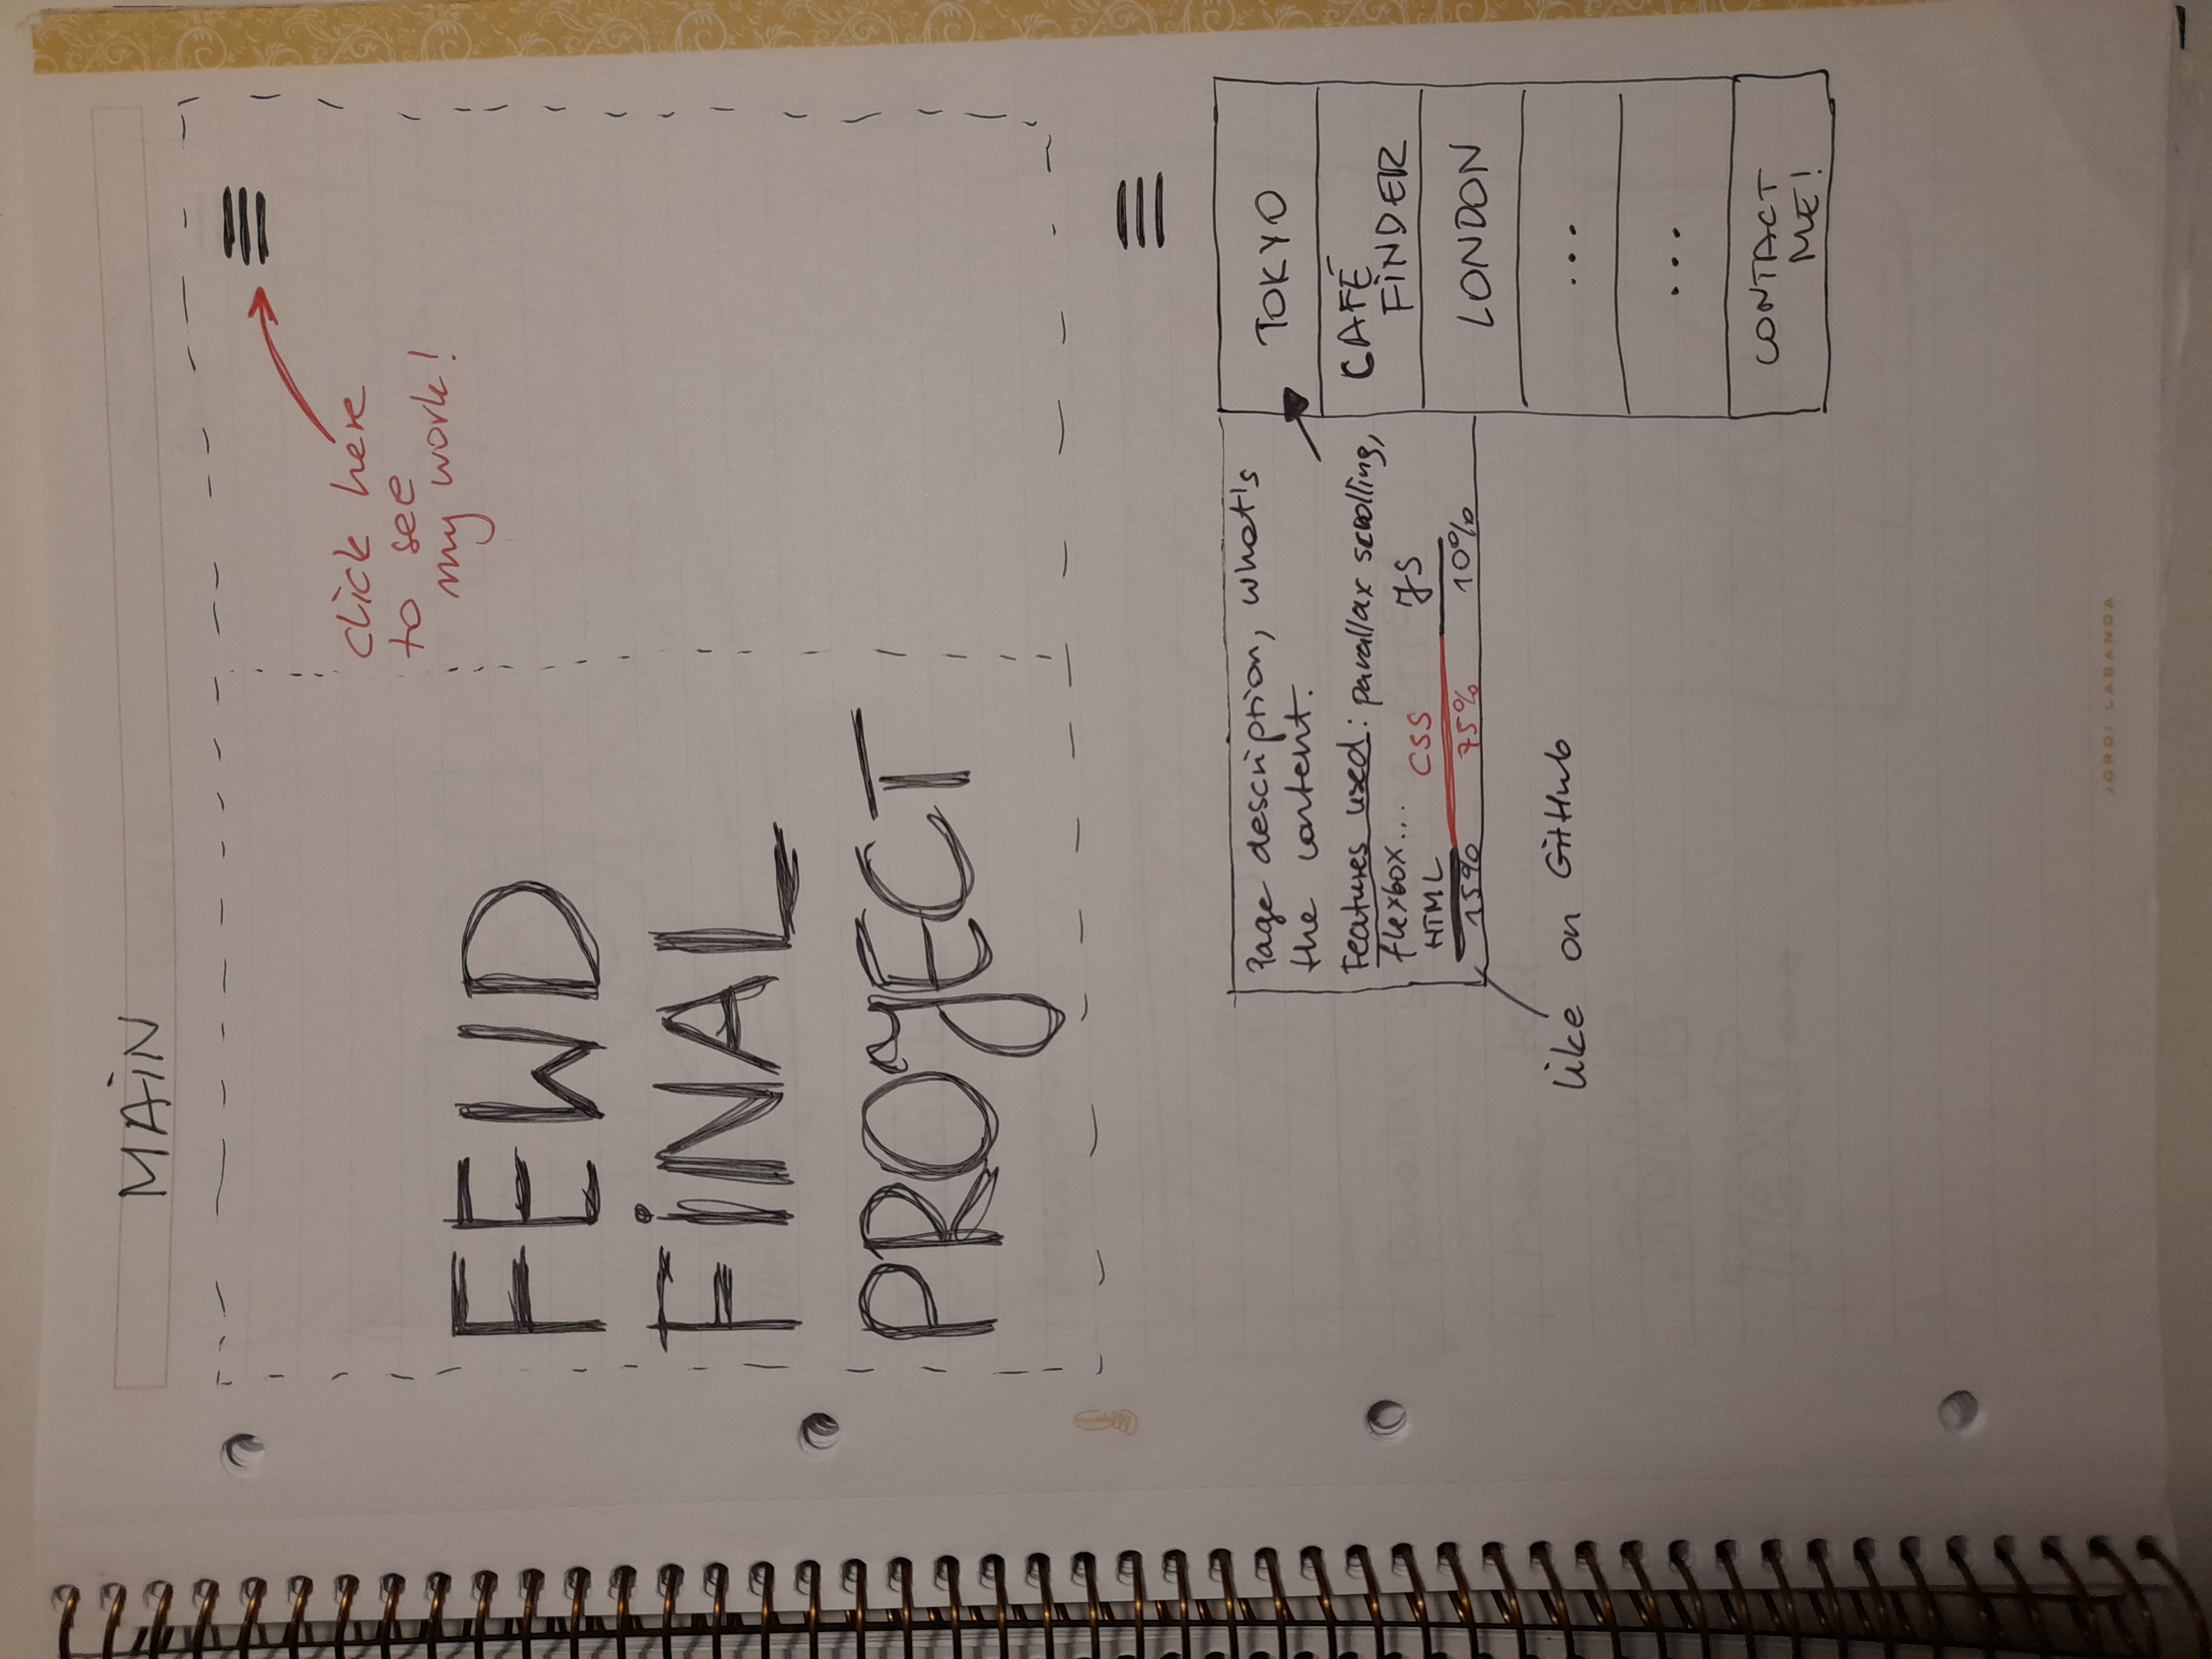 MAIN
click here
to see
my work!
FEWD
FINAL
PROJECT
Page description, what's
the content.
Features used: parallax scrolling,
flexbox...
HTML CSS JS
15% 75% 10%
like on GitHub
TOKYO
CAFÉ
FINDER
LONDON
...
...
CONTACT
ME!
JORDI LABANDA